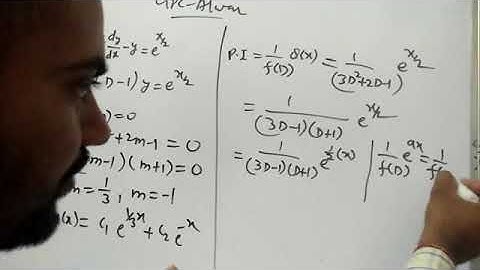 dy/dx - y = e^(x/2)
D-1) y = e^(x/2)
) = 0
+ 2m - 1 = 0
m-1) (m+1) = 0
m = 1/3, m = -1
(x) = C₁ e^(1/3 x) + C₂ e^(-x)
P.I = 1/f(D) Q(x) = 1/(3D²+2D-1) e^(x/2)
= 1/(3D-1)(D+1) e^(x/2)
= 1/(3D-1)(D+1) e^(1/2 (x))
1/f(D) e^(ax) = 1/f(